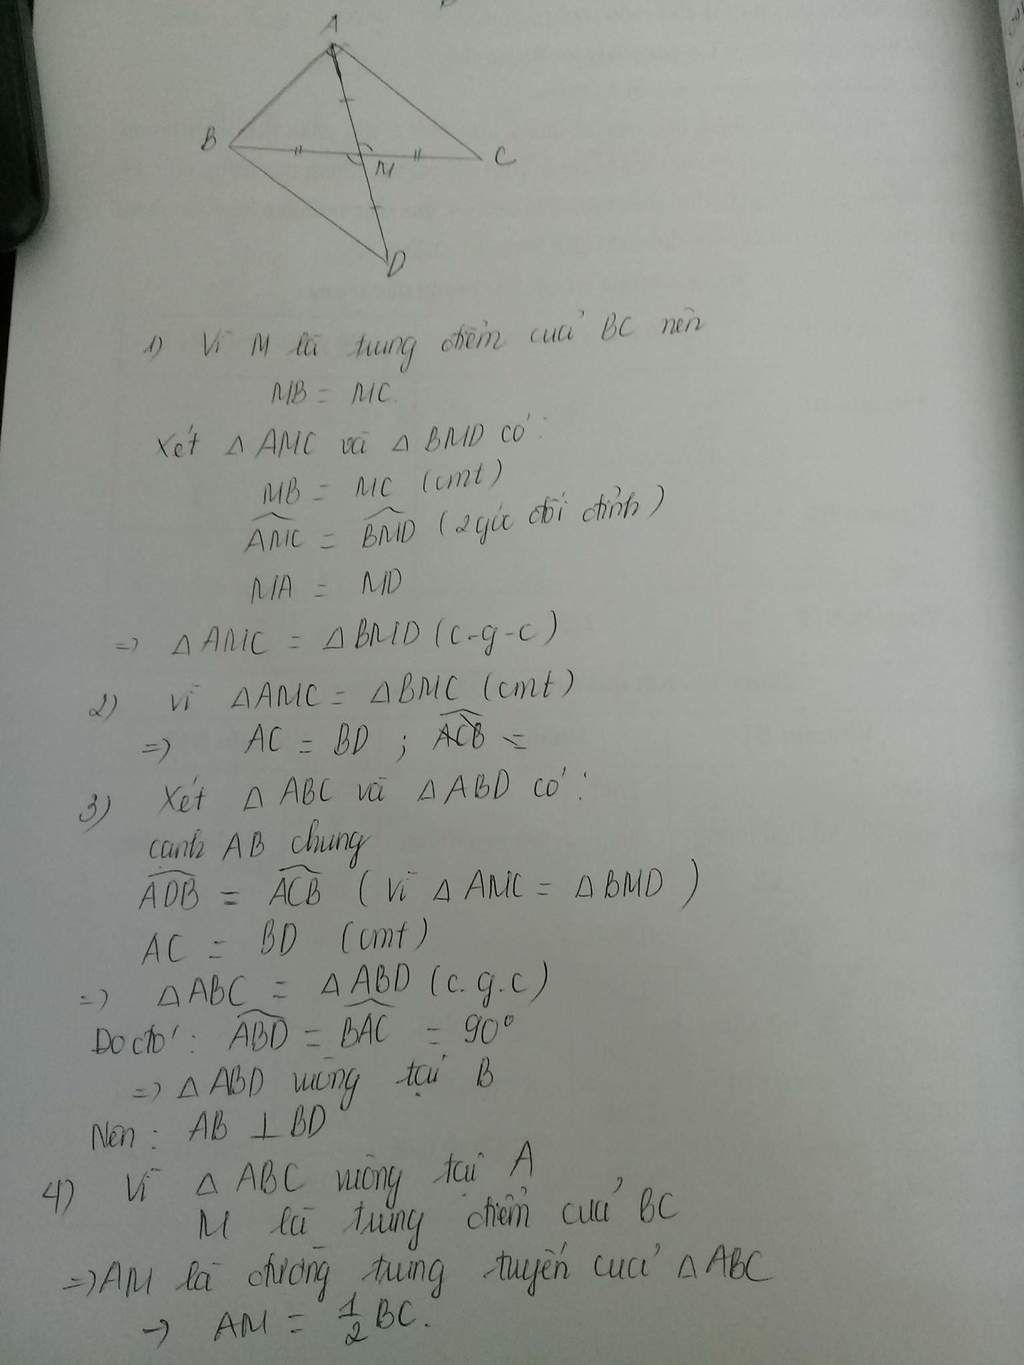 A
B
C
M
D
1) Vì M là trung điểm của BC nên
MB = MC.
Xét △ AMC và △ BMD có:
MB = MC (cmt)
$\widehat{AMC}$ = $\widehat{BMD}$ (2 góc đối đỉnh)
MA = MD
=> △ AMC = △ BMD (c-g-c)
2) Vì △AMC = △BMC (cmt)
=> AC = BD ; $\widehat{ACB}$ =
3) Xét △ ABC và △ ABD có:
cạnh AB chung
$\widehat{ADB}$ = $\widehat{ACB}$ (Vì △ AMC = △ BMD)
AC = BD (cmt)
=> △ABC = △ABD (c.g.c)
Do đó: $\widehat{ABD}$ = $\widehat{BAC}$ = 90°
=> △ ABD vuông tại B
Nên: AB ⊥ BD
4) Vì △ ABC vuông tại A
M là trung điểm của BC
=> AM là đường trung tuyến của △ ABC
-> AM = $\frac{1}{2}$ BC.